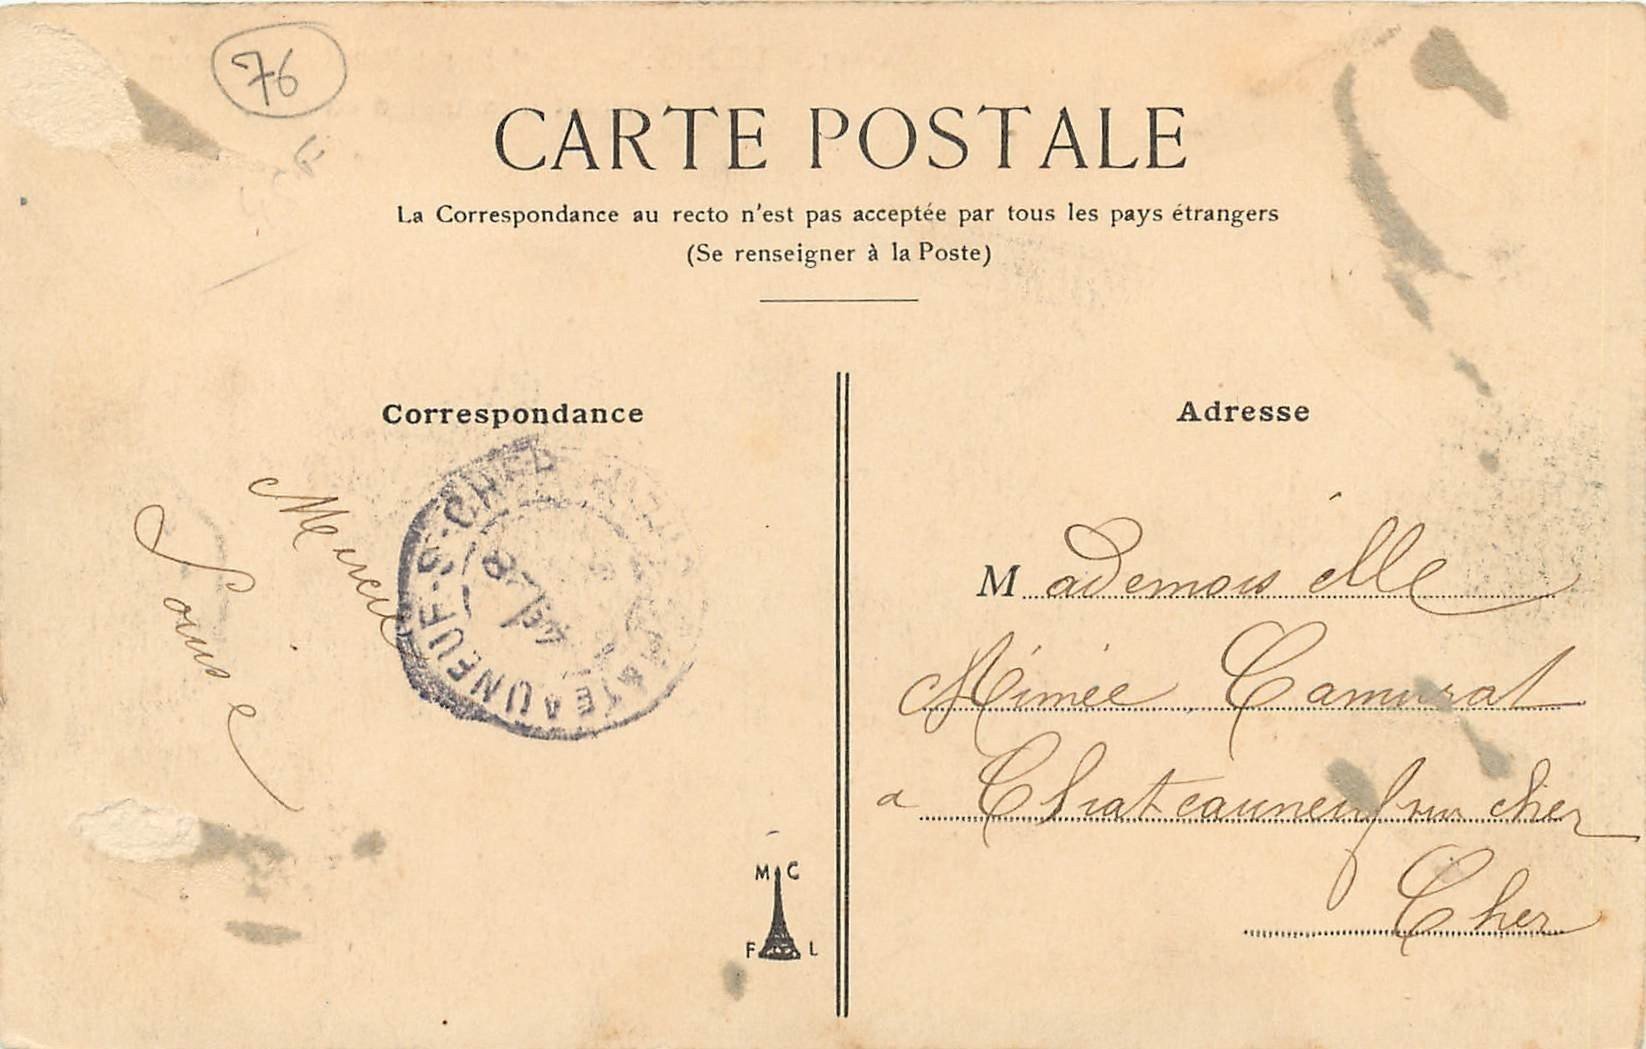 76
CARTE POSTALE
La Correspondance au recto n'est pas acceptée par tous les pays étrangers
(Se renseigner à la Poste)
Correspondance
Merci
Louise
CHATEAUNEUF-S-CHER
M C
F L
Adresse
Mademoiselle
Mimée Camurat
a Chateauneuf sur cher
Cher